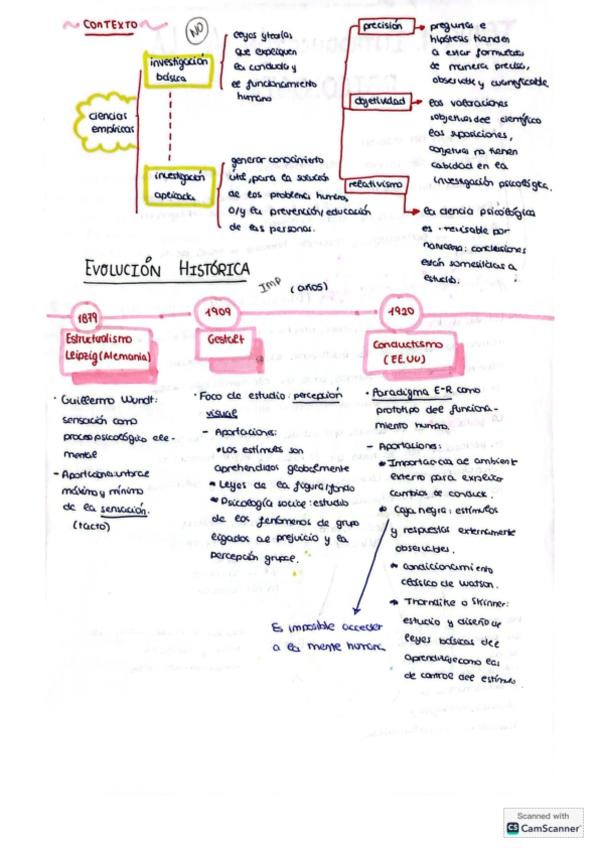 CONTEXTO
NO
ciencias
empíricas
investigación
básica
leyes y teorías
que expliquen
la conducta y
el funcionamiento
humano
investigación
aplicada
generar conocimiento
útil, para la solución
de los problemas humanos
o/y la prevención/educación
de las personas.
precisión
preguntas e
hipótesis tienden
a estar formuladas
de manera precisa,
observable y cuantificable.
objetividad
las valoraciones
subjetivas del científico
las suposiciones,
conjeturas no tienen
cabidad en la
investigación psicológica.
relativismo
la ciencia psicológica
es revisable por
naturaleza: conclusiones
están sometidas a
estudio.
EVOLUCIÓN HISTÓRICA
IMP (años)
1879
Estructuralismo
Leipzig (Alemania)
· Guillermo Wundt:
sensación como
proceso psicológico ele-
mental
- Aportaciones: umbral
máximo y mínimo
de la sensación.
(tacto)
1909
Gestalt
· Foco de estudio: percepción
visual
- Aportaciones:
Los estímulos son
aprehendidos globalmente
Leyes de la figura/fondo
Psicología social: estudio
de los fenómenos de grupo
ligados al prejuicio y la
percepción grupal.
1920
Conductismo
(EE.UU)
· Paradigma E-R como
prototipo del funciona-
miento humano.
- Aportaciones:
Importancia al ambiente
externo para explicar
cambios de conducta.
Caja negra: estímulos
y respuestas externamente
observables.
condicionamiento
clásico de Watson.
Thorndike o Skinner:
estudio y diseño de
leyes básicas del
aprendizaje como las
de control del estímulo
Es imposible acceder
a la mente humana.
Scanned with
CS CamScanner